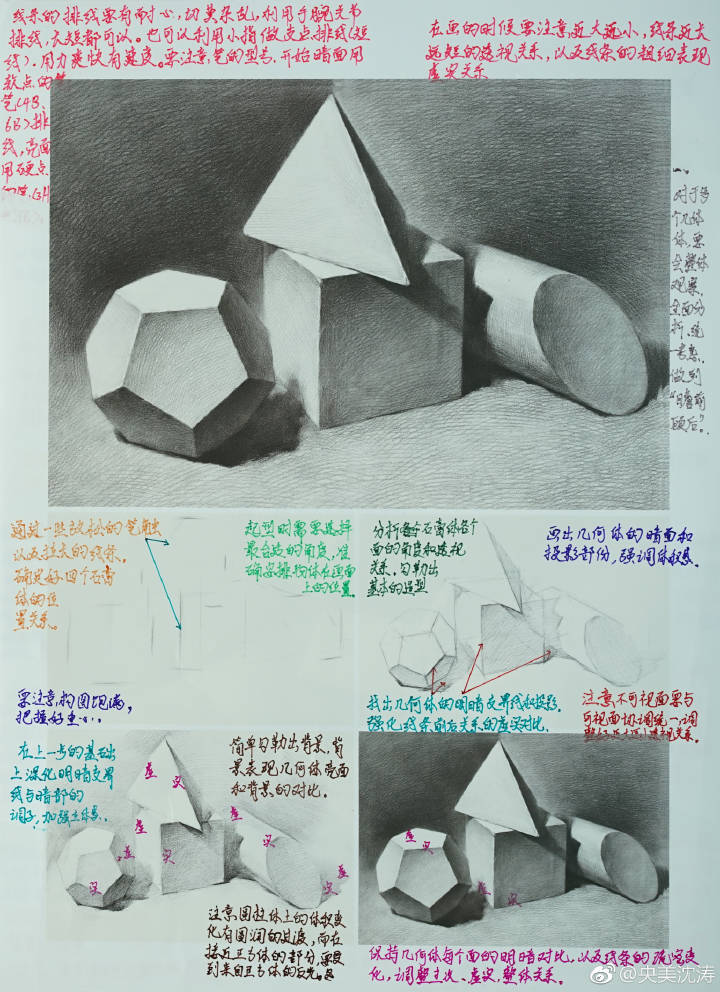 线条的排线要有耐心,切莫杂乱,利用手腕关节
排线,长短都可以。也可以利用小指做支点排线(短
线),用力爽快有速度。要注意笔的型号,开始暗面用
软点的
笔(4B、
6B)排
线,亮面
用硬点
在画的时候要注意近大近小,线条近长
远短的透视关系,以及线条的粗细表现
虚实关系
对于多
个几何
体,要
会整体
观察,
全面分
析,统
一考虑,
做到
“瞻前
顾后”。
通过一些放松的笔触
以及拉长的线条,
确定好四个石膏
体的位
置关系。
起型时需要选择
最合适的角度,准
确安排物体在画面
上的位置
要注意构图饱满,
把握好重心。
分析每个石膏体各个
面的角度和透视
关系,勾勒出
基本的造型
画出几何体的暗面和
投影部份,强调体积感。
找出几何体的明暗交界线和投影,
强化线条前后关系的虚实对比.
注意不可视面要与
可视面协调统一,调
整 透视关系。
在上一步的基础
上深化明暗交界
线与暗部的
调子,加强立体感.
简单勾勒出背景,背
景表现几何体亮面
和背景的对比.
虚
实
虚
实
虚
实
虚
实
虚
实
注意圆柱体上的体积变
化有圆润的过渡,而在
接近正方体的部分,要
到来自正方体的反光。
虚
实
虚
实
保持几何体每个面的明暗对比,以及线条的疏密变
化,调整主次、虚实,整体关系。
@央美沈涛